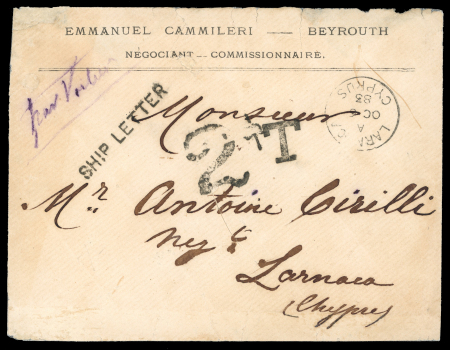 EMMANUEL CAMMILERI — BEYROUTH
NÉGOCIANT — COMMISSIONNAIRE.
par
SHIP LETTER
LARNACA
A
OC
83
CYPRUS
Monsieur
2
T
Mr. Antoine Cirilli
Larnaca
(Chypre)